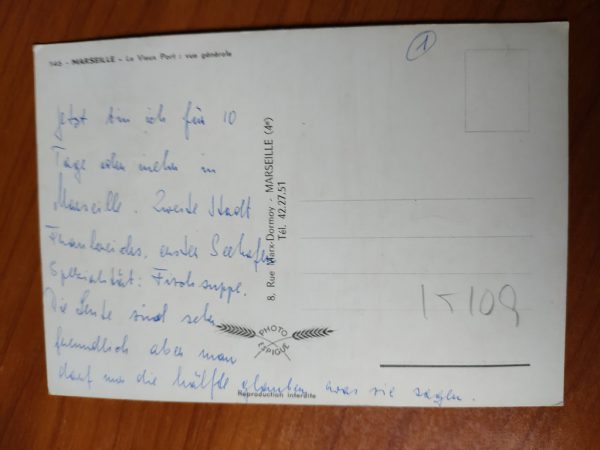 145 - MARSEILLE - Le Vieux Port : vue générale
1
Jetzt bin ich für 10
Tage oder mehr in
Marseille. Zweite Stadt
Frankreichs, erster Seehafen
Spezialität: Fischsuppe.
Die Leute sind sehr
freundlich aber man
darf nur die hälfte glauben was sie sagen.
8, Rue Marx-Dormoy - MARSEILLE (4e)
Tél. 42.27.51
PHOTO
ESPIGUE
Reproduction interdite
15109